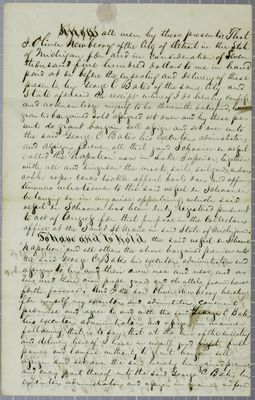 Know all men by these presents, That
I Oliver Newberry of the City of Detroit in the State
of Michigan for and in consideration of Seven
Thousand five hundred dollars to me in hand
paid at or before the ensealing and delivery of these
presents by George C Bates of the same city and
State aforesaid the receipt whereof I do hereby confess
and acknowledge myself to be therewith satisfied do
grant bargained sold assigned set over and by these pres-
ents do grant bargain sell assign and set over unto
the said George C. Bates his executors administrators
and assigns forever all that good Schooner or vessel
called the Napoleon now in Lake Superior, together
with all and singular the masts sails anchors
cable ropes cords tackle apparel boats oars and appur-
tenances whatsoever to the said vessel or Schooner
belonging or in any wise appertaining which said
vessel or Schooner has been duly registered pursuant
to act of Congress for that purpose in the Collectors
office at the Sault St Marie in said State of Michigan
To Have and to Hold the said vessel or Schooner
Napoleon and all other the above bargained premises to
the said George C Bates his executors administrators and
assigns to his and their own use and uses and as
his and their proper goods and chattels from hence
forth forever. And I the said Oliver Newberry hereby
for myself my executors and administrators covenant
promise and agree to and with the said George C Bates
his executors administrators and assigns in manner
following that is to say that at the time of the ensealing
and delivery hereof I have in myself good right full
power and lawful authority to grant bargain sell
assign and set over the said hereby bargained premises
and every part thereof to the said George C Bates his
executors administrators and assigns in manner and form